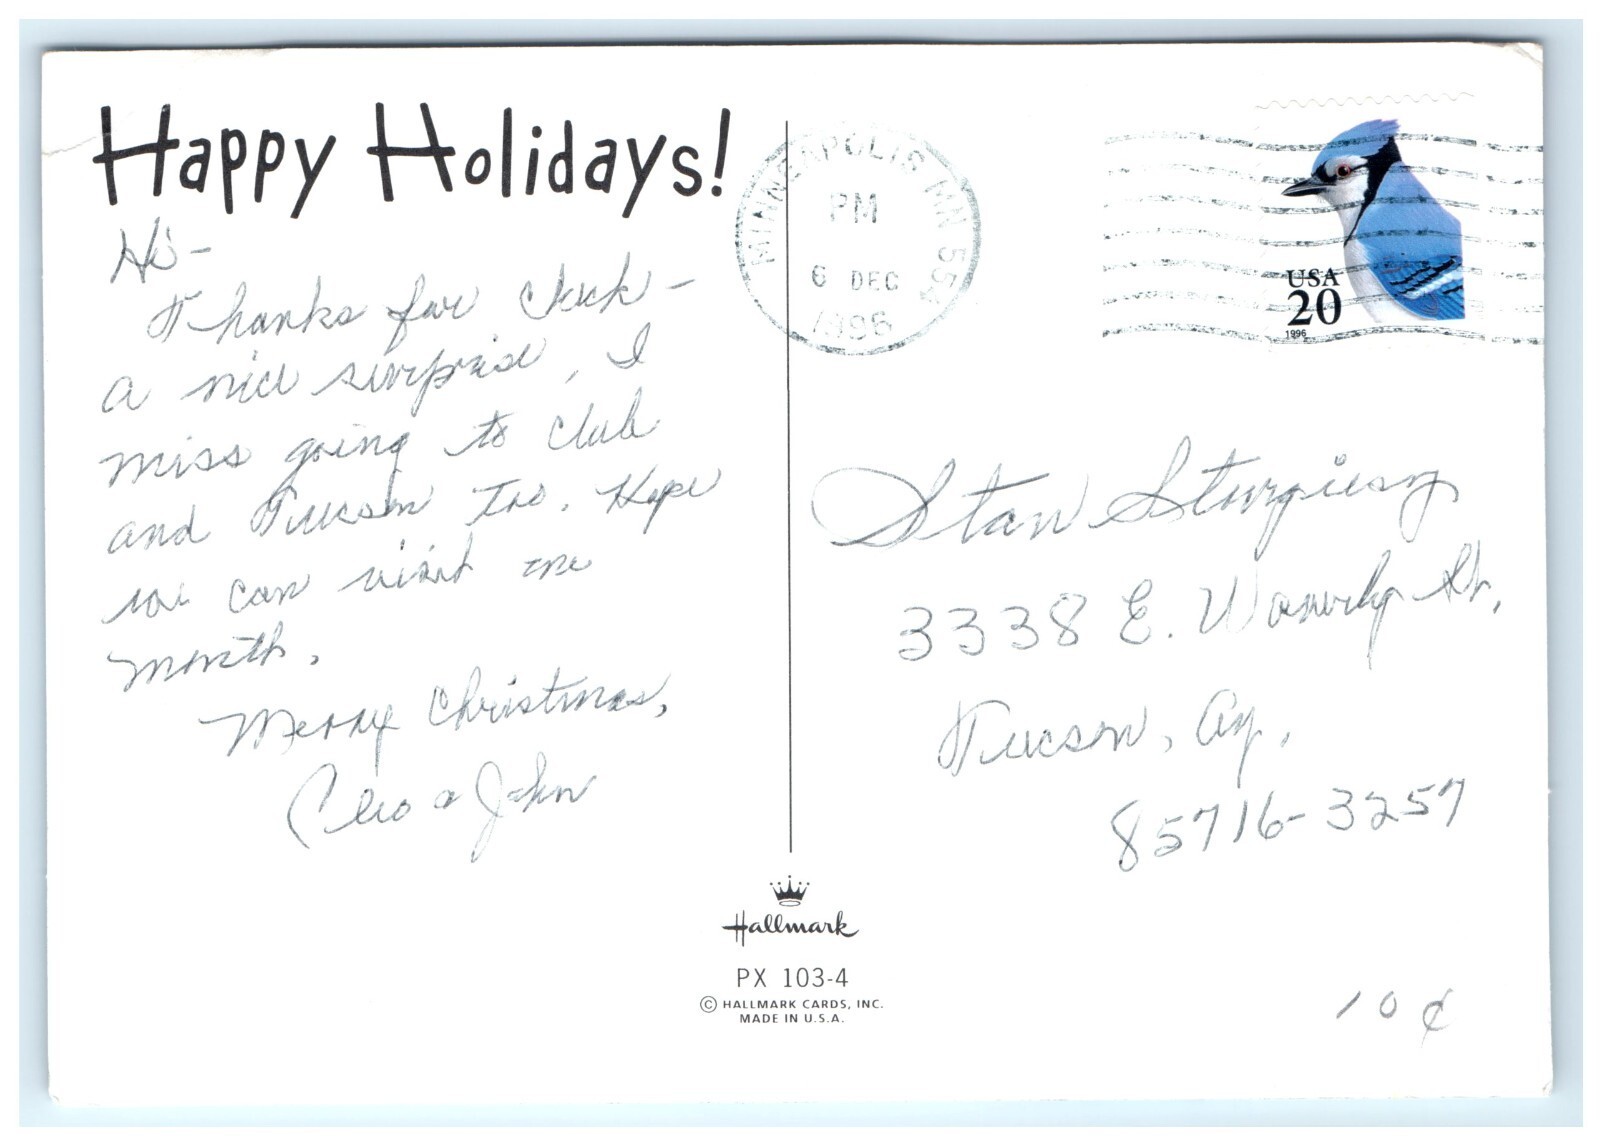 Happy Holidays!
Hi-
Thanks for check-
a nice surprise, I
miss going to club
and Tucson too. Hope
we can visit one
month.
Merry Christmas,
Cleo & John
MINNEAPOLIS MN 554
PM
6 DEC
1996
USA
20
1996
Stan
3338 E. Waverly St.
Tucson, Az.
85716-3257
Hallmark
PX 103-4
© HALLMARK CARDS, INC.
MADE IN U.S.A.
10¢